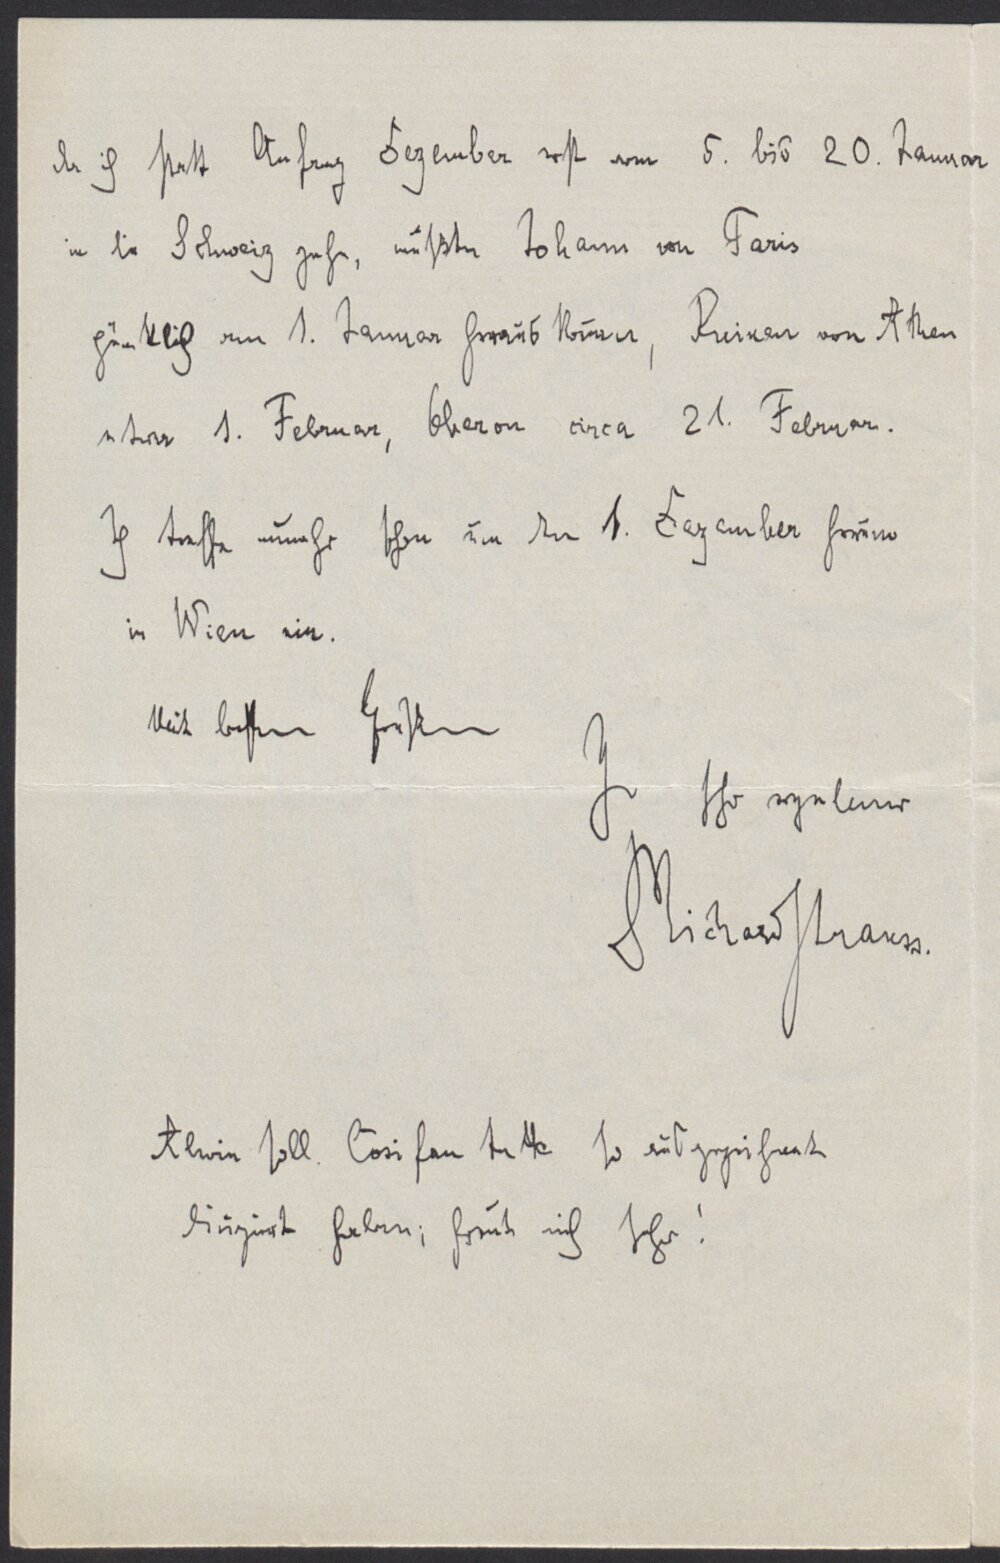 da ich statt Anfang Dezember erst vom 5. bis 20. Januar
in die Schweiz gehe, müßte Johann von Paris
pünktlich am 1. Januar herauskommen, Ruinen von Athen
etwa 1. Februar, Oberon circa 21. Februar.
Ich treffe nunmehr schon um den 1. Dezember herum
in Wien ein.
Mit besten Grüßen
Ihr sehr ergebener
Richard Strauss.
Alwin soll Cosi fan tutte so ausgezeichnet
dirigiert haben; freut mich sehr!